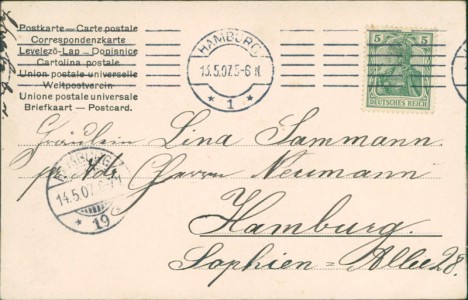 Postkarte — Carte postale
Correspondenzkarte
Levelező-Lap — Dopisnice
Cartolina postale
Union postale universelle
Weltpostverein
Unione postale universale
Briefkaart — Postcard.
HAMBURG
13.5.07.5-6 N.
* 1 *
5 5
DEUTSCHES REICH
Fräulein Lina Sammann.
Herrn Neumann
Hamburg.
Sophien-Allee 28.
HAMBURG
14.5.07
* 19